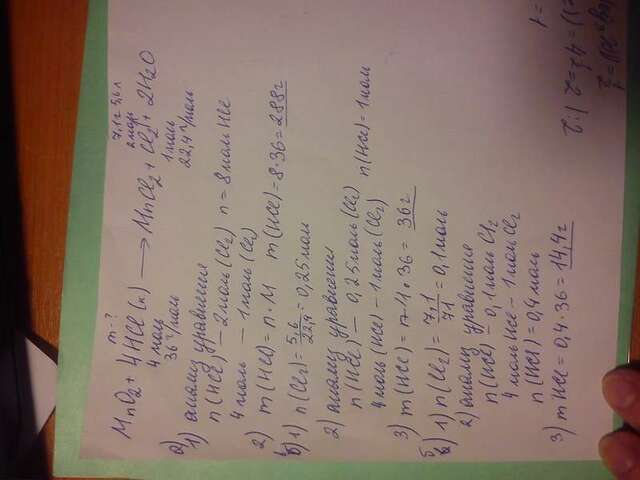 m-?
7,1г 5,6л
2моль
MnO2 + 4HCl(к) ⟶ MnCl2 + Cl2↑ + 2H2O
4 моль
1 моль
36 г/моль
22,4 г/моль
а)
1) анализ уравнения
n(HCl) – 2 моль(Cl2) n = 8 моль HCl
4 моль – 1 моль (Cl2)
2) m(HCl) = n · M m(HCl) = 8·36 = 288г
б) 1) n(Cl2) = 5,6/22,4 = 0,25 моль
2) анализ уравнения
n(HCl) – 0,25 моль (Cl2)
4 моль (HCl) – 1 моль (Cl2) n(HCl) = 1 моль
3) m(HCl) = n·M · 36 = 36г
в) 1) n(Cl2) = 7,1/71 = 0,1 моль
2) анализ уравнения
n(HCl) – 0,1 моль Cl2
4 моль HCl – 1 моль Cl2
n(HCl) = 0,4 моль
3) m HCl = 0,4 · 36 = 14,4г